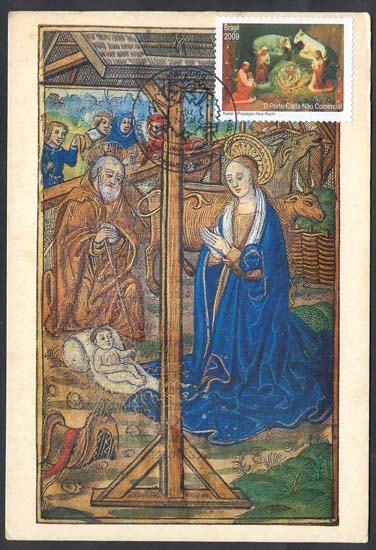 Brasil
2009
1º Porte Carta Não Comercial
Natal - Presépio Ana Roch